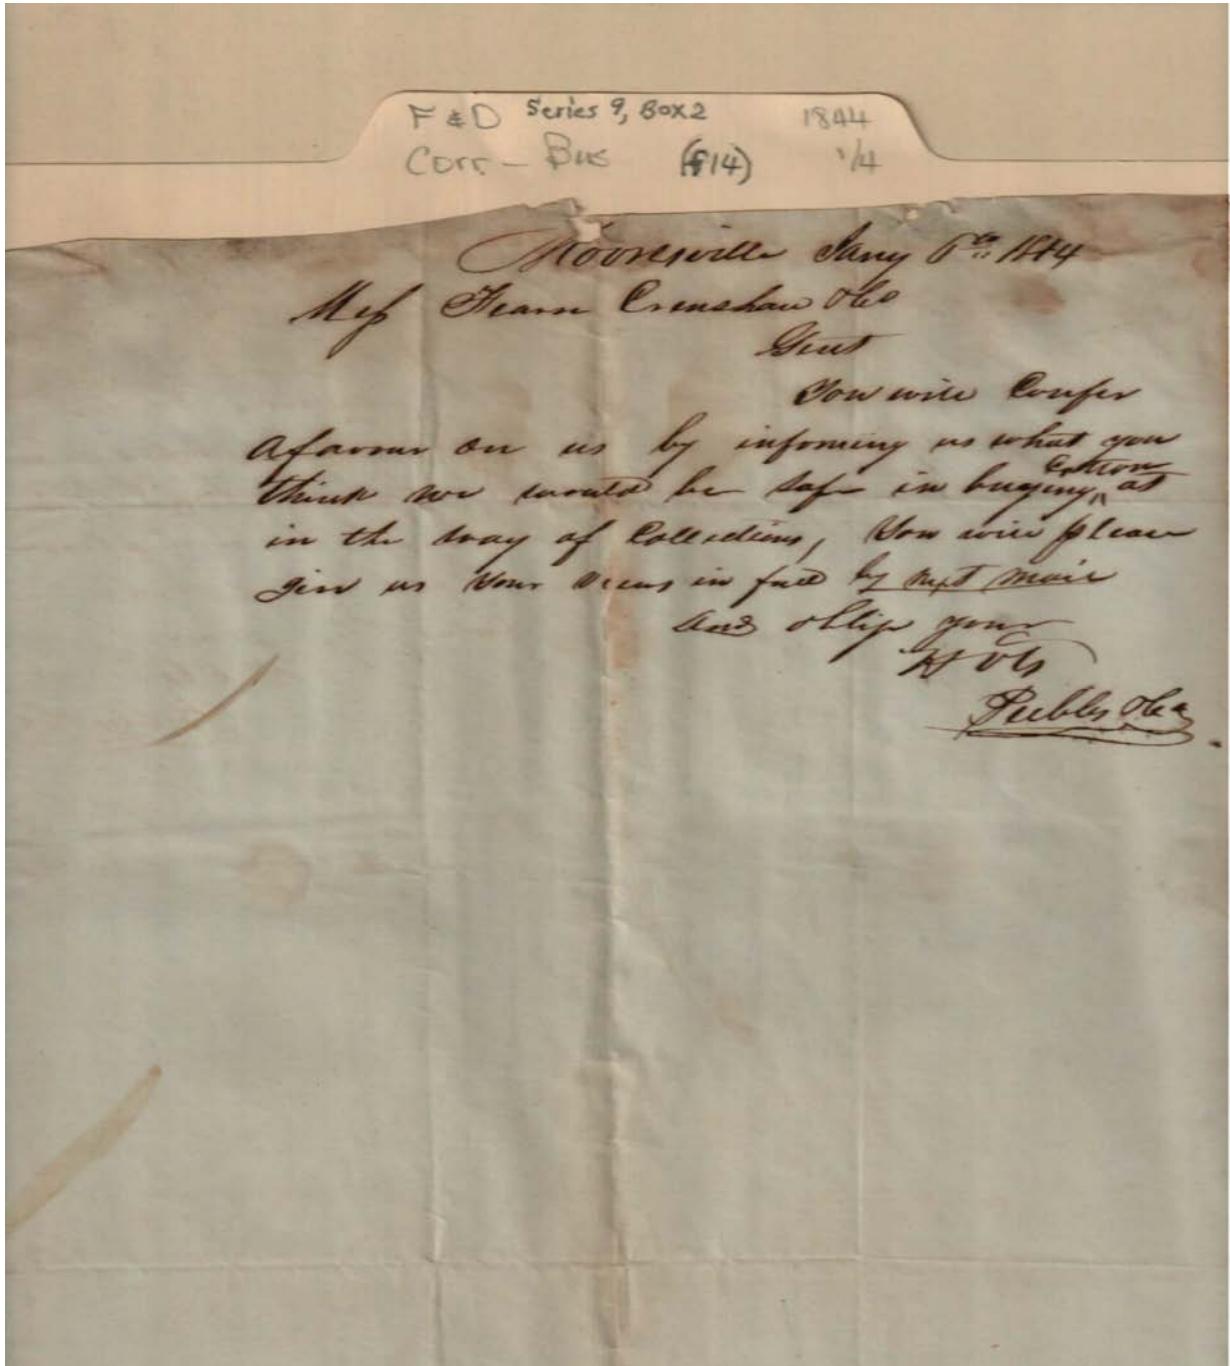 F & D Series 9, Box 2 1844
Corr - Bus (f14) 1/4
Mooresville Jany 6th 1844
Mess Fearn Crenshaw & Co
Gent
You will Confer
a favour on us by informing us what you
think we would be safe in buying Cotton at
in the way of Collections, You will please
give us your views in full by next mail
and oblige your
Peebles & Co